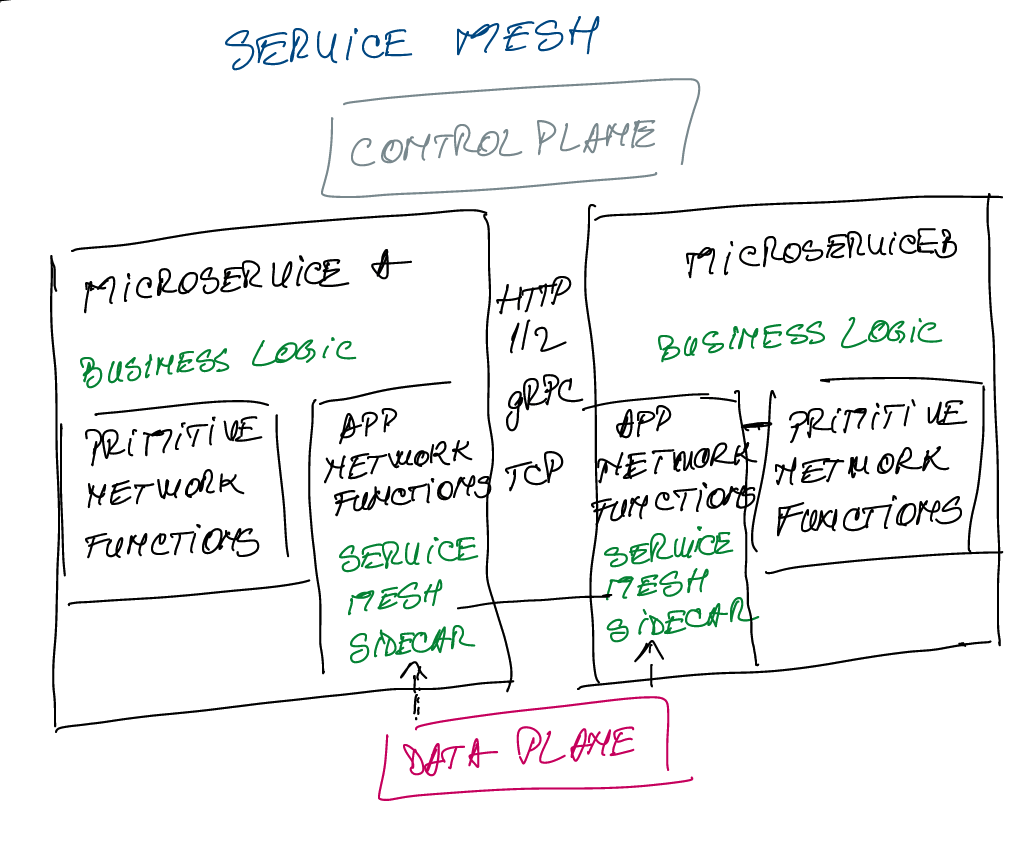 SERVICE MESH
CONTROL PLANE
MICROSERVICE A
BUSINESS LOGIC
PRIMITIVE
NETWORK
FUNCTIONS
APP
NETWORK
FUNCTIONS
SERVICE
MESH
SIDECAR
HTTP
1/2
gRPC
TCP
MICROSERVICE B
BUSINESS LOGIC
APP
NETWORK
FUNCTIONS
SERVICE
MESH
SIDECAR
PRIMITIVE
NETWORK
FUNCTIONS
DATA PLANE